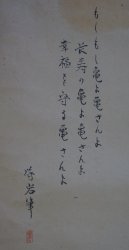 もしもし亀よ亀さんよ
長寿の亀よ亀さんよ
幸福を守る亀さんよ